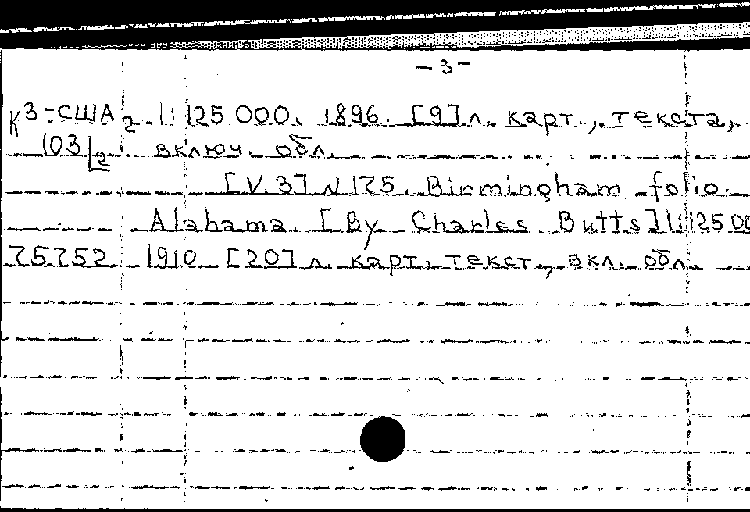 – 3 –
К3-США 2 1:125 000. 1896. [9] л. карт., текста,
103|2 включ. обл.
[V.3] N 175. Birmingham folio
Alabama. [By Charles Butts] 1:125 00
75752 1910 [20] л. карт. текст, вкл. обл.